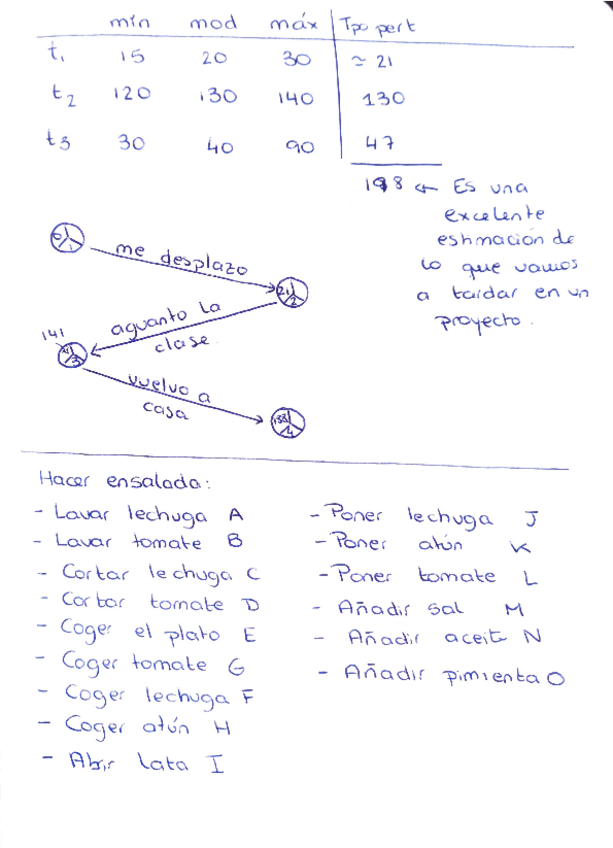 mín mod máx Tpo pert
t1 15 20 30 ≃ 21
t2 120 130 140 130
t3 30 40 90 47
198 ← Es una
excelente
estimación de
lo que vamos
a tardar en un
proyecto.
me desplazo
21 2
aguanto la
clase
141
3
vuelvo a
casa
4
Hacer ensalada:
- Lavar lechuga A
- Lavar tomate B
- Cortar lechuga C
- Cortar tomate D
- Coger el plato E
- Coger tomate G
- Coger lechuga F
- Coger atún H
- Abrir lata I
- Poner lechuga J
- Poner atún K
- Poner tomate L
- Añadir sal M
- Añadir aceite N
- Añadir pimienta O